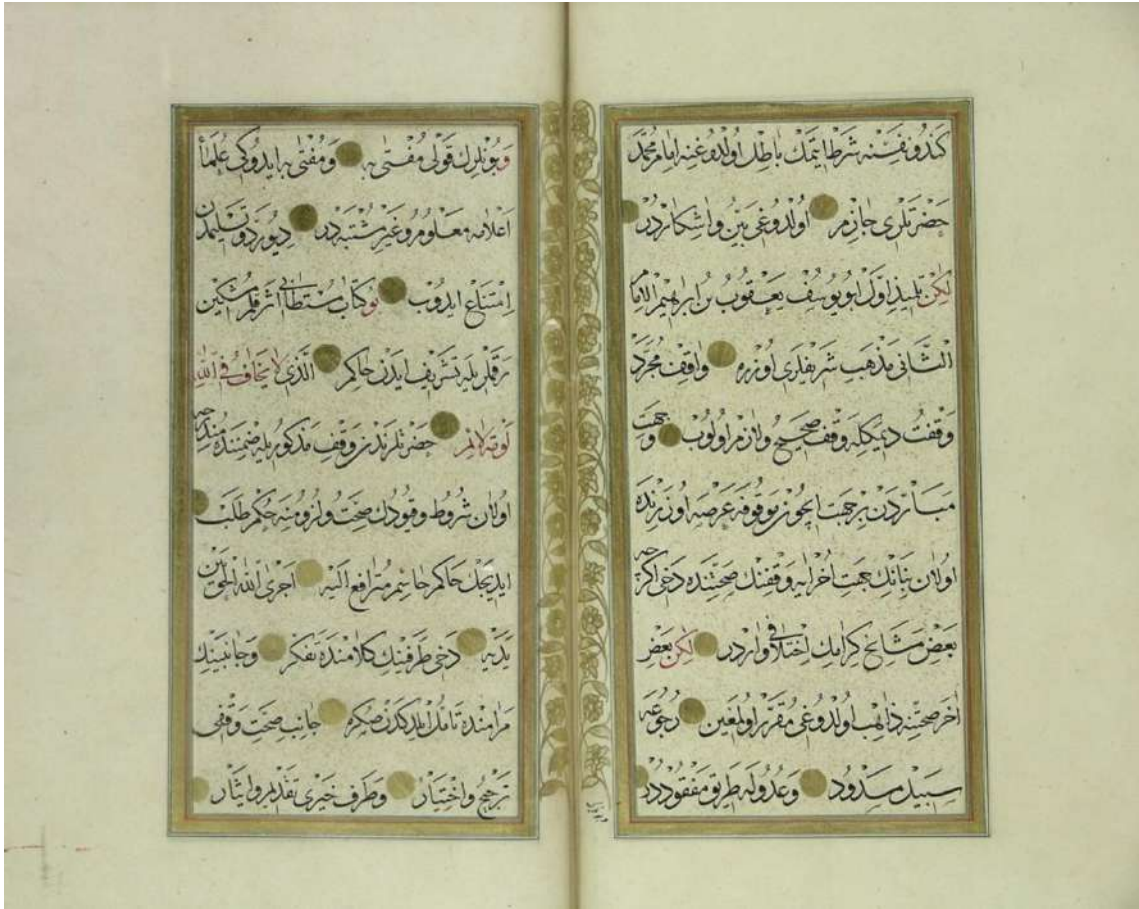 كندو نفسنه شرط ايتمك باطل اولدوغنه امام محمد
حضرتلرى جازم اولدوغى بين واشكاردر
لكن تلميذ اول ابو يوسف يعقوب بن ابراهيم الامام
الثانى مذهب شريفلرى اوزره واقف مجرد
وقفت ديمكله وقف صحيح ولازم اولوب وجهت
مباردن بر جهت ايچون موقوفه عرصه اوزرنده
اولان بنانك جهت اخرايه وقفنك صحتنده دخى اكرچه
بعض مشايخ كرامك اختلافى واردر لكن بعض
اخر صحتنه ذاهب اولدوغى مقرر اولمغين رجوعه
سبيل مسدود وعدوله طريق مفقوددر
وبونلرك قولى مفتى به ومفتى به ايدوكى علماء
اعلامه معلوم وغير مشتبه در ديورد وتسليمدن
امتناع ايدوب بو كتاب مستطابى اثر قلم مشكين
رقملريله تشريف ايدن حاكم الذى لا يخاف فى الله
لومة لائم حضرتلرندن وقف مذكور بله ضمننده مندرجه
اولان شروط وقيودك صحت ولزومنه حكم طلب
ايديجك حاكم حاسم مترافع اليه اجرى الله الحق بين
يديه دخى طرفينك كلامنده تفكر وجانبينك
مرامنده تامل ايلدكدن صكره جانب صحت وقفى
ترجيح واختيار وطرف خيرى تقديم وايثار